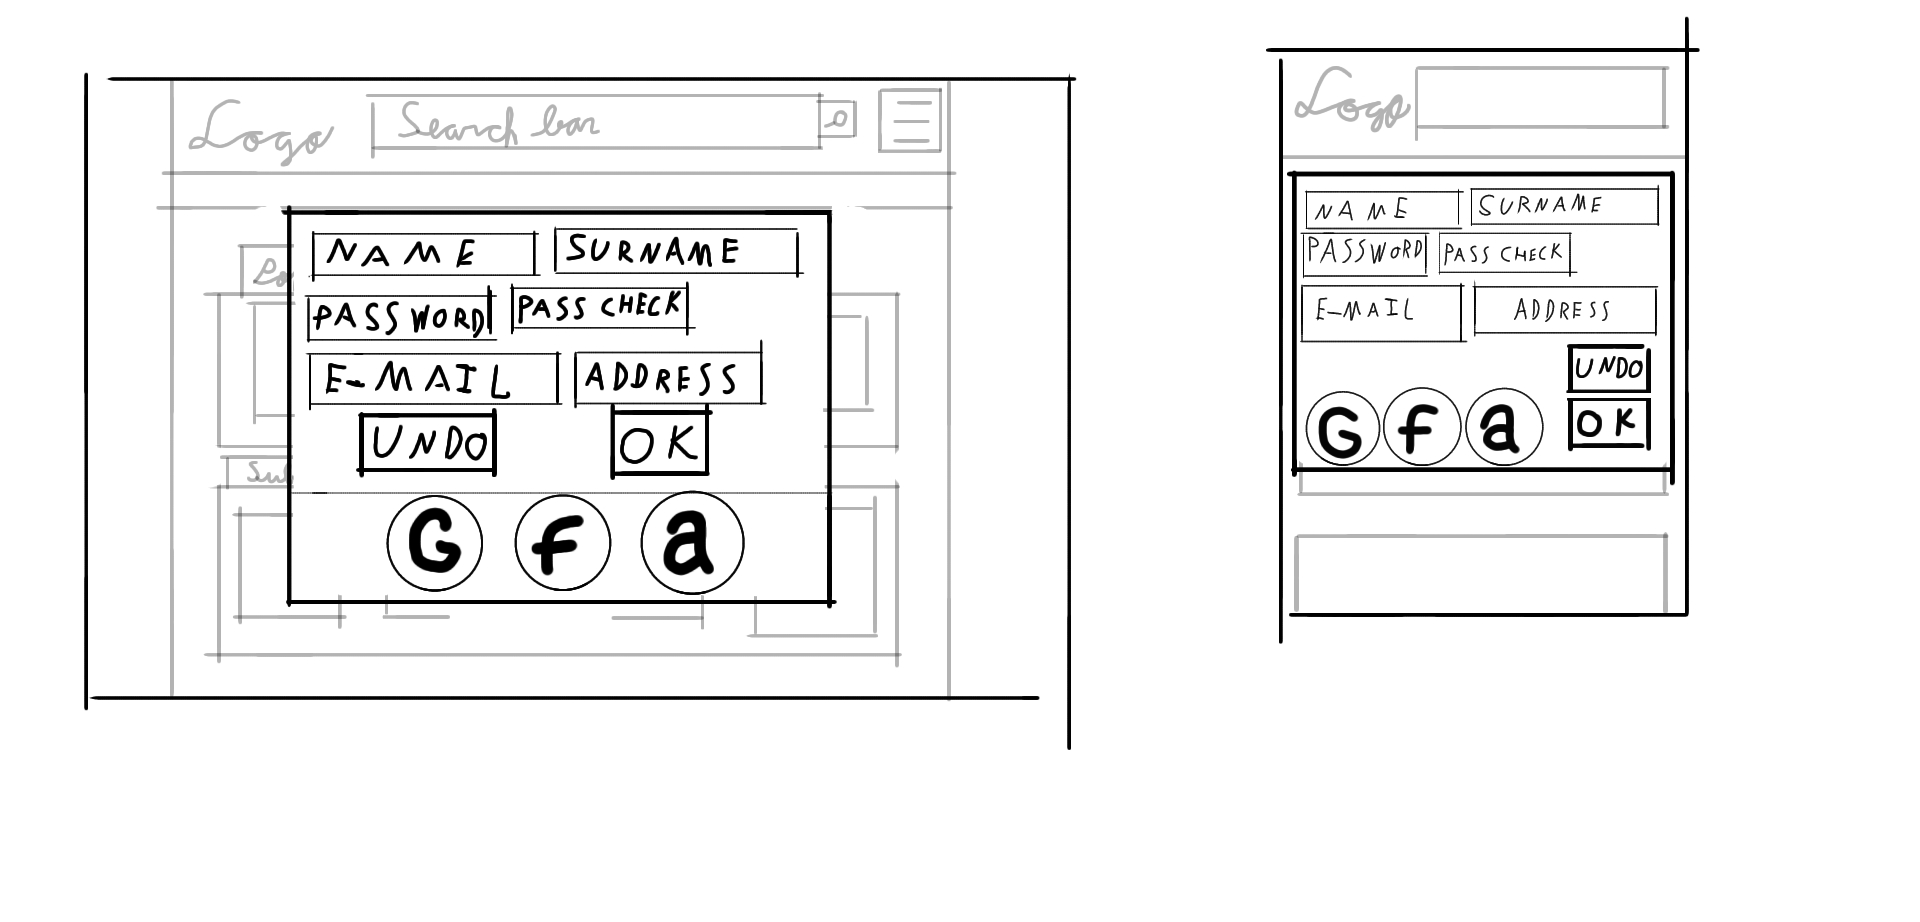 Logo Search bar
NAME SURNAME
PASSWORD PASS CHECK
E-MAIL ADDRESS
UNDO OK
G f a
Logo
NAME SURNAME
PASSWORD PASS CHECK
E-MAIL ADDRESS
UNDO
G f a OK